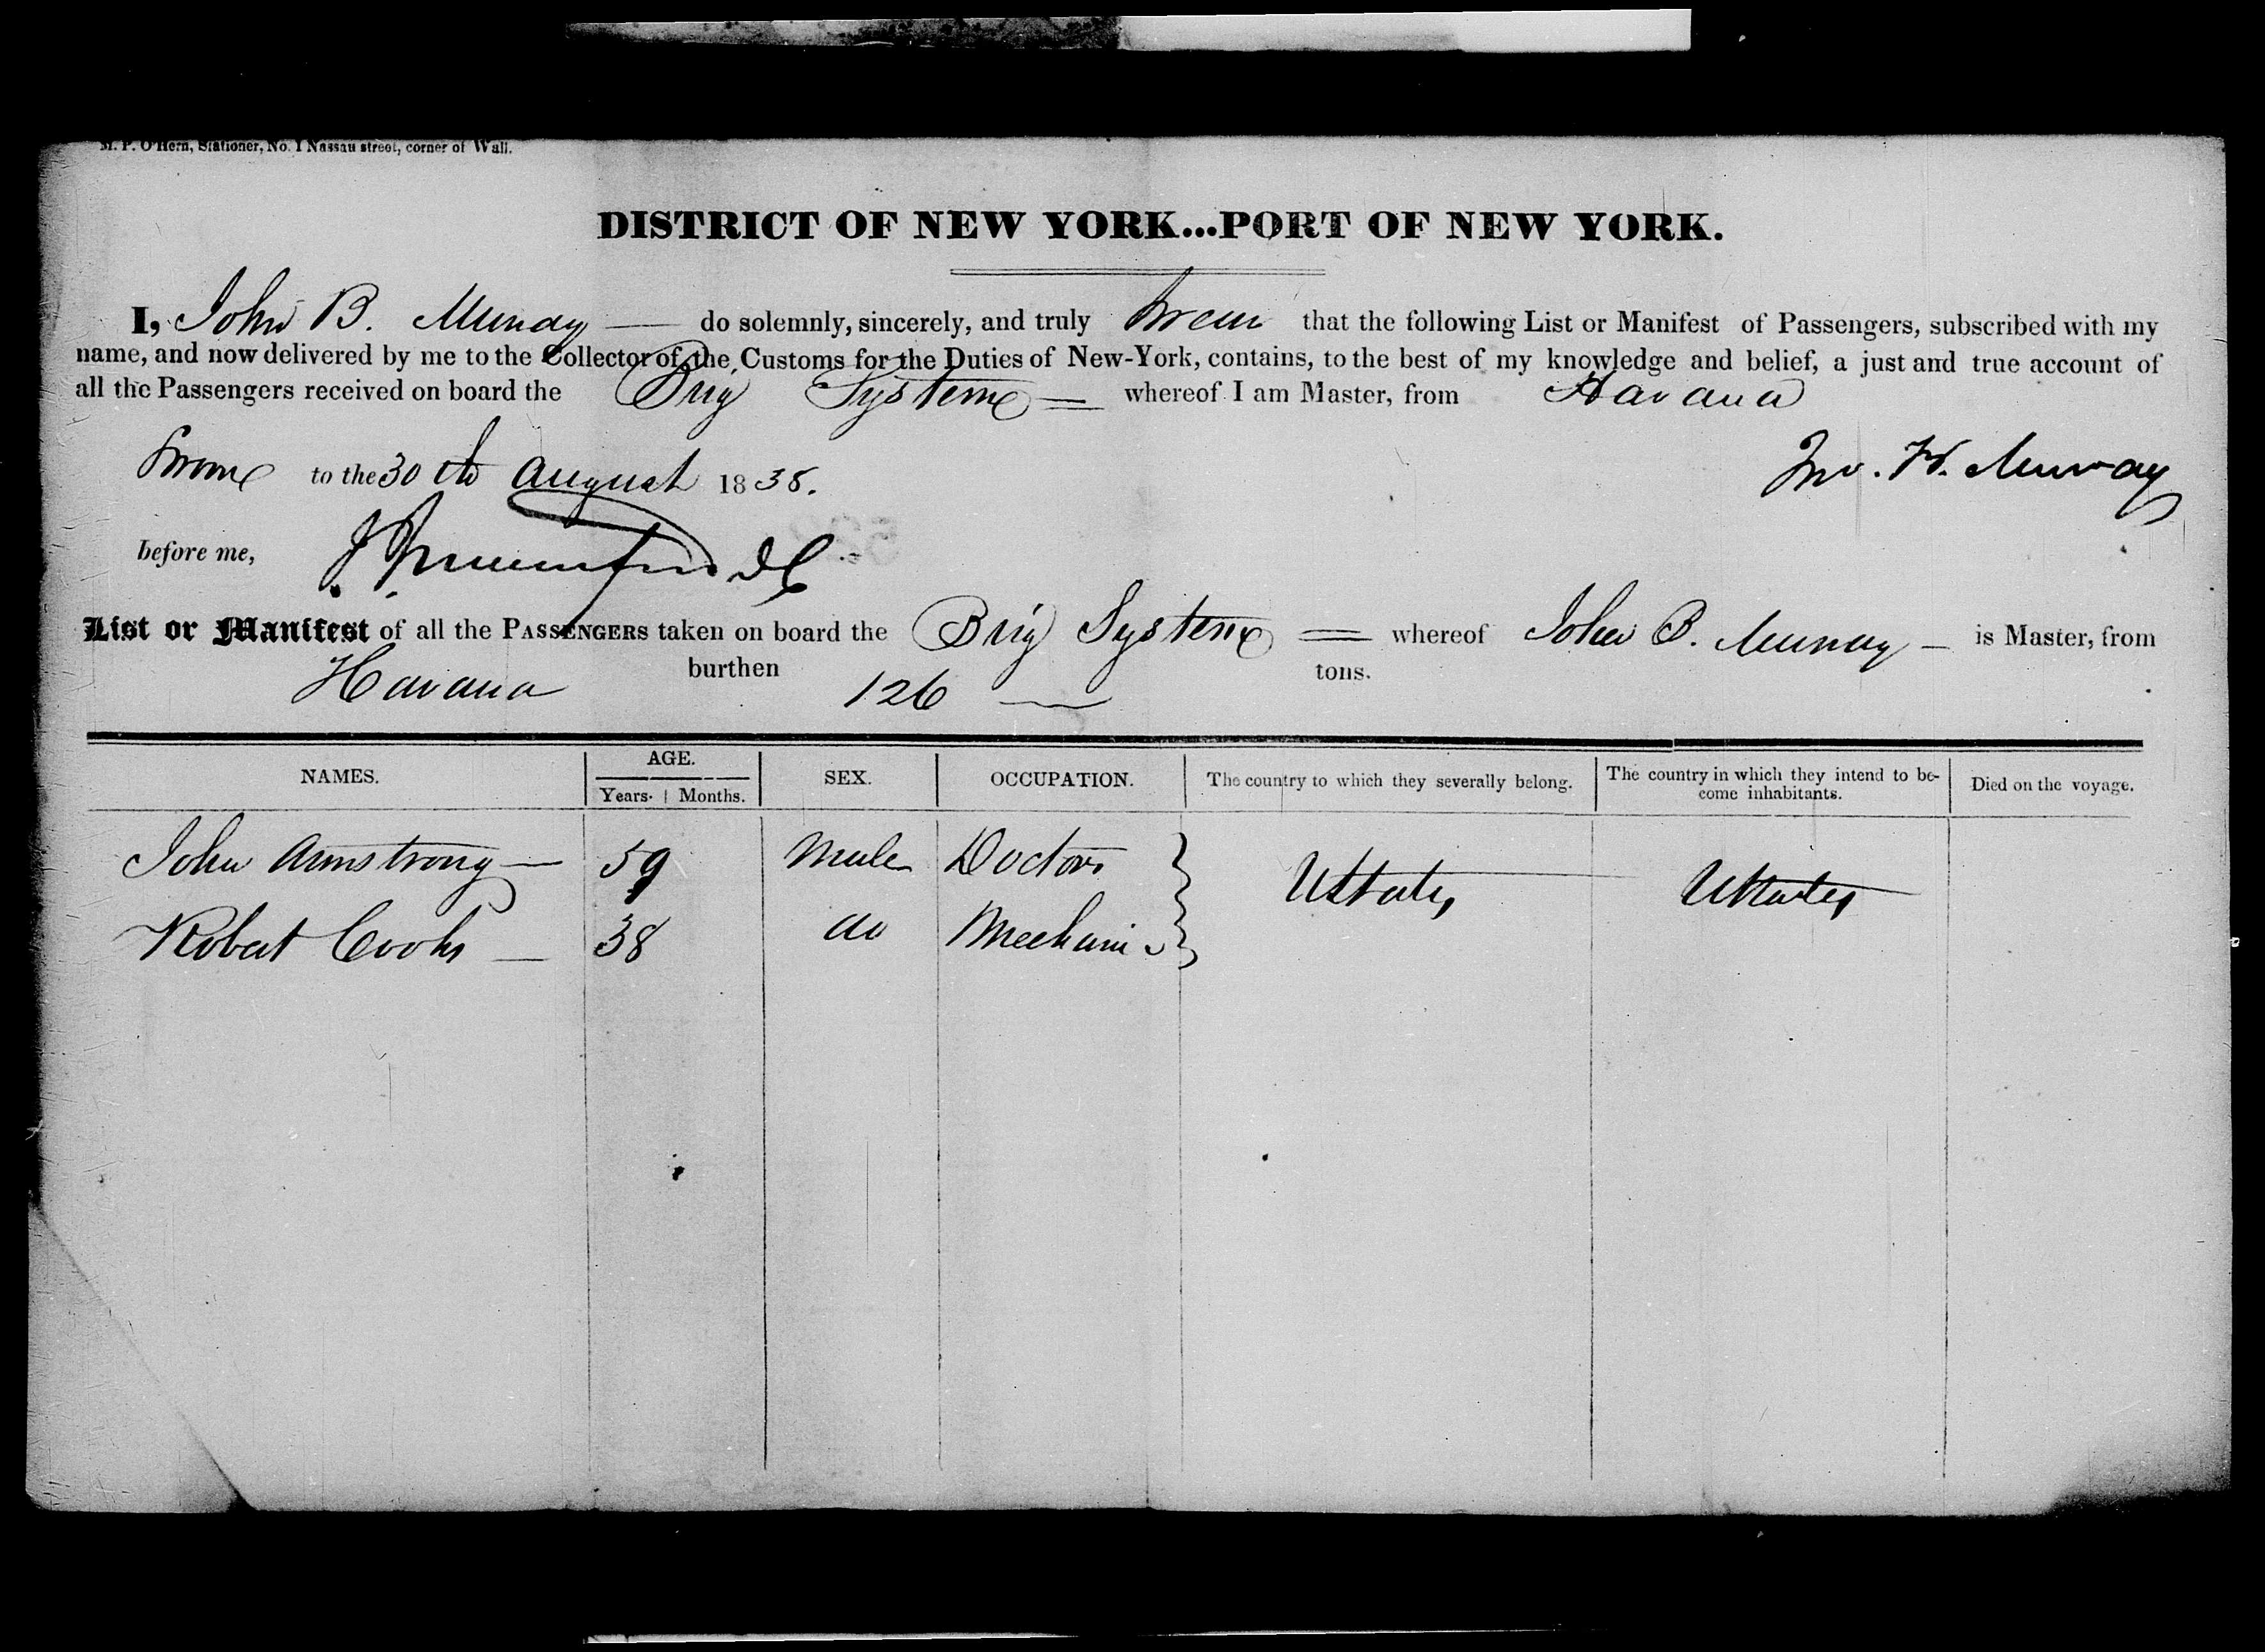 M. P. O'Hern, Stationer, No. 1 Nassau street, corner of Wall.
DISTRICT OF NEW YORK...PORT OF NEW YORK.
I, John B. Murray do solemnly, sincerely, and truly swear that the following List or Manifest of Passengers, subscribed with my
name, and now delivered by me to the Collector of the Customs for the Duties of New-York, contains, to the best of my knowledge and belief, a just and true account of
all the Passengers received on board the Brig System whereof I am Master, from Havana
Sworn to the 30th August 1838. Jno. H. Murray
before me,
List or Manifest of all the PASSENGERS taken on board the Brig System whereof John B. Murray is Master, from
Havana burthen 126 tons.
NAMES. AGE. SEX. OCCUPATION. The country to which they severally belong. The country in which they intend to be-
come inhabitants. Died on the voyage.
Years. Months.
John Armstrong 59 Male Doctor UStates UStates
Robert Cooks 38 do Mechanic